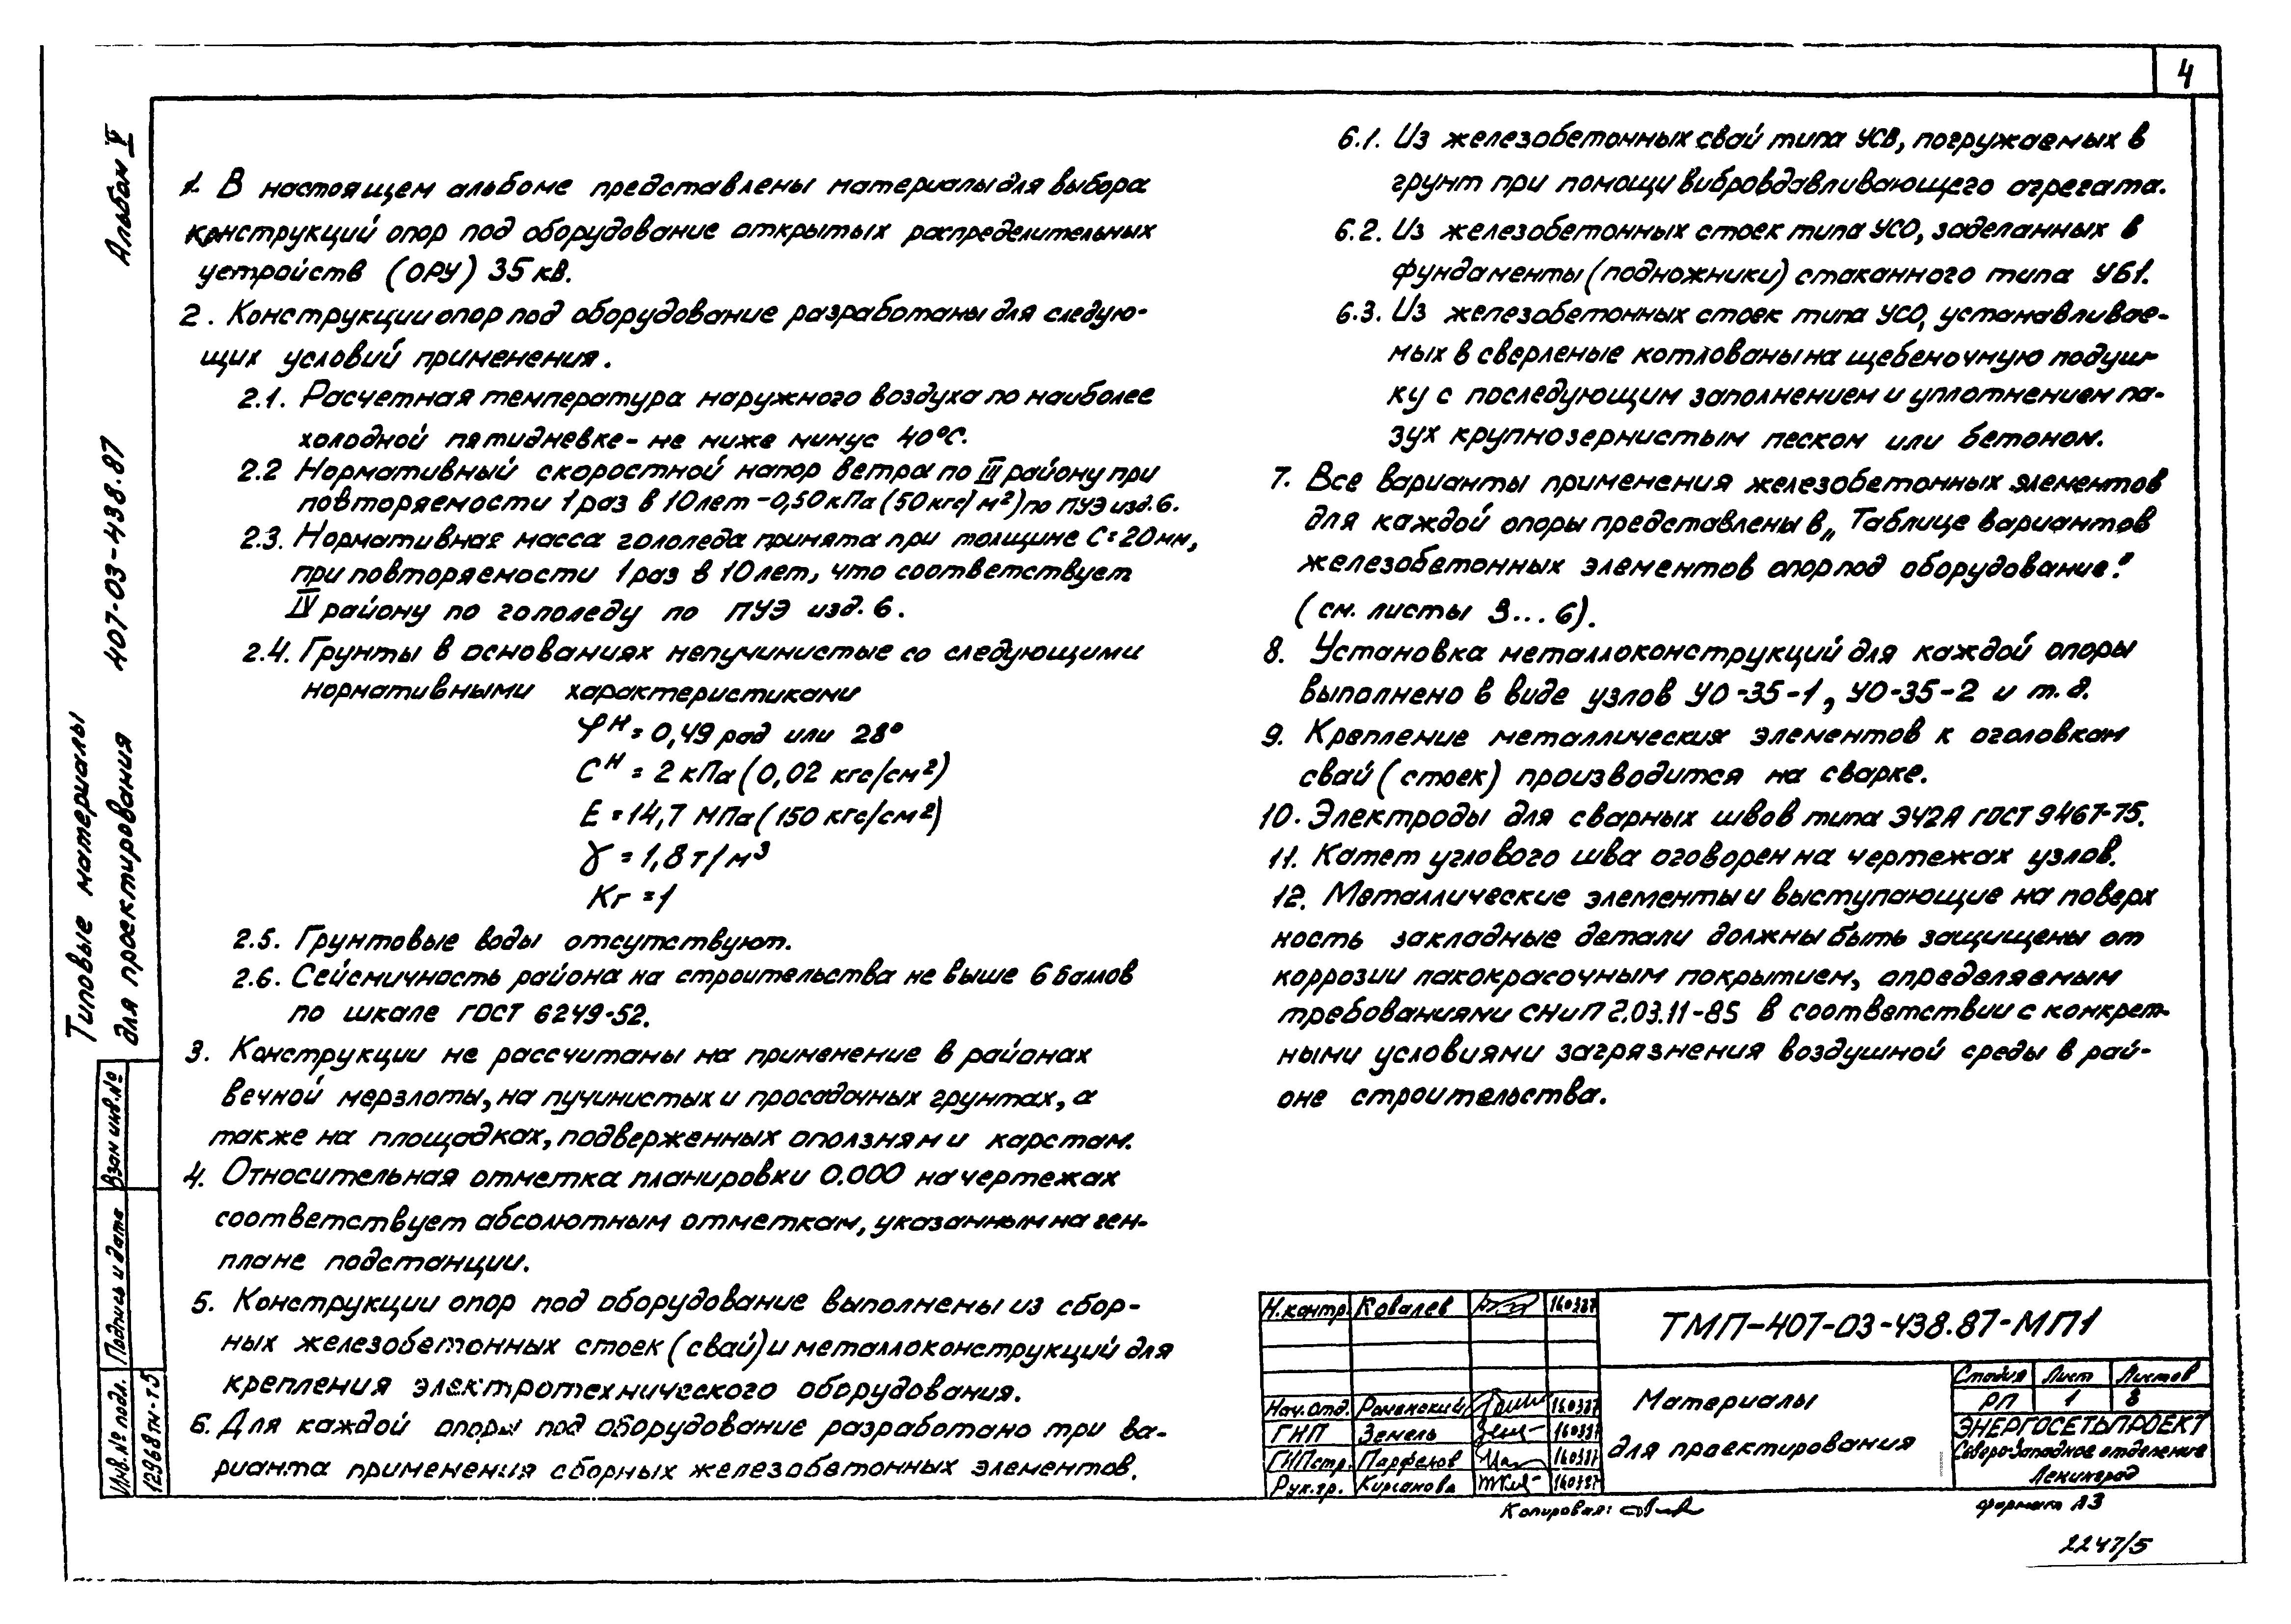 4
Альбом V
407-03-438.87
Типовые материалы
для проектирования
1. В настоящем альбоме представлены материалы для выбора
конструкций опор под оборудование открытых распределительных
устройств (ОРУ) 35 кВ.
2. Конструкции опор под оборудование разработаны для следую-
щих условий применения.
2.1. Расчетная температура наружного воздуха по наиболее
холодной пятидневке - не ниже минус 40°С.
2.2 Нормативный скоростной напор ветра по III району при
повторяемости 1 раз в 10 лет - 0,50 кПа (50 кгс/м²) по ПУЭ изд. 6.
2.3. Нормативная масса гололеда принята при толщине С=20мм,
при повторяемости 1 раз в 10 лет, что соответствует
IV району по гололеду по ПУЭ изд. 6.
2.4. Грунты в основаниях непучинистые со следующими
нормативными характеристиками
φᴴ = 0,49 рад или 28°
Сᴴ = 2 кПа (0,02 кгс/см²)
Е = 14,7 МПа (150 кгс/см²)
γ = 1,8 т/м³
Кг = 1
2.5. Грунтовые воды отсутствуют.
2.6. Сейсмичность района на строительства не выше 6 баллов
по шкале ГОСТ 6249-52.
3. Конструкции не рассчитаны на применение в районах
вечной мерзлоты, на пучинистых и просадочных грунтах, а
также на площадках, подверженных оползням и карстам.
4. Относительная отметка планировки 0.000 на чертежах
соответствует абсолютным отметкам, указанным на ген-
плане подстанции.
5. Конструкции опор под оборудование выполнены из сбор-
ных железобетонных стоек (свай) и металлоконструкций для
крепления электротехнического оборудования.
6. Для каждой опоры под оборудование разработано три ва-
рианта применения сборных железобетонных элементов.
6.1. Из железобетонных свай типа УСВ, погружаемых в
грунт при помощи вибровдавливающего агрегата.
6.2. Из железобетонных стоек типа УСО, заделанных в
фундаменты (подножники) стаканного типа УБ1.
6.3. Из железобетонных стоек типа УСО, устанавливае-
мых в сверленые котлованы на щебеночную подуш-
ку с последующим заполнением и уплотнением па-
зух крупнозернистым песком или бетоном.
7. Все варианты применения железобетонных элементов
для каждой опоры представлены в „Таблице вариантов
железобетонных элементов опор под оборудование."
(см. листы 3...6).
8. Установка металлоконструкций для каждой опоры
выполнено в виде узлов УО-35-1, УО-35-2 и т.д.
9. Крепление металлических элементов к оголовкам
свай (стоек) производится на сварке.
10. Электроды для сварных швов типа Э42А ГОСТ 9467-75.
11. Катет углового шва оговорен на чертежах узлов.
12. Металлические элементы и выступающие на поверх
ность закладные детали должны быть защищены от
коррозии лакокрасочным покрытием, определяемым
требованиями СНиП 2.03.11-85 в соответствии с конкрет-
ными условиями загрязнения воздушной среды в рай-
оне строительства.
Взам инв. №
Подпись и дата
Инв. № подл.
12968тм-т5
Н.контр. Ковалев 160387
Нач. отд. Роменский 160387
ГИП Земель 160387
ГИП стр. Парфенов 160387
Рук. гр. Кирсанова 160387
ТМП-407-03-438.87-МП1
Материалы
для проектирования
Стадия Лист Листов
РП 1 8
ЭНЕРГОСЕТЬПРОЕКТ
Северо-Западное отделение
Ленинград
Копировал:
формат А3
2247/5